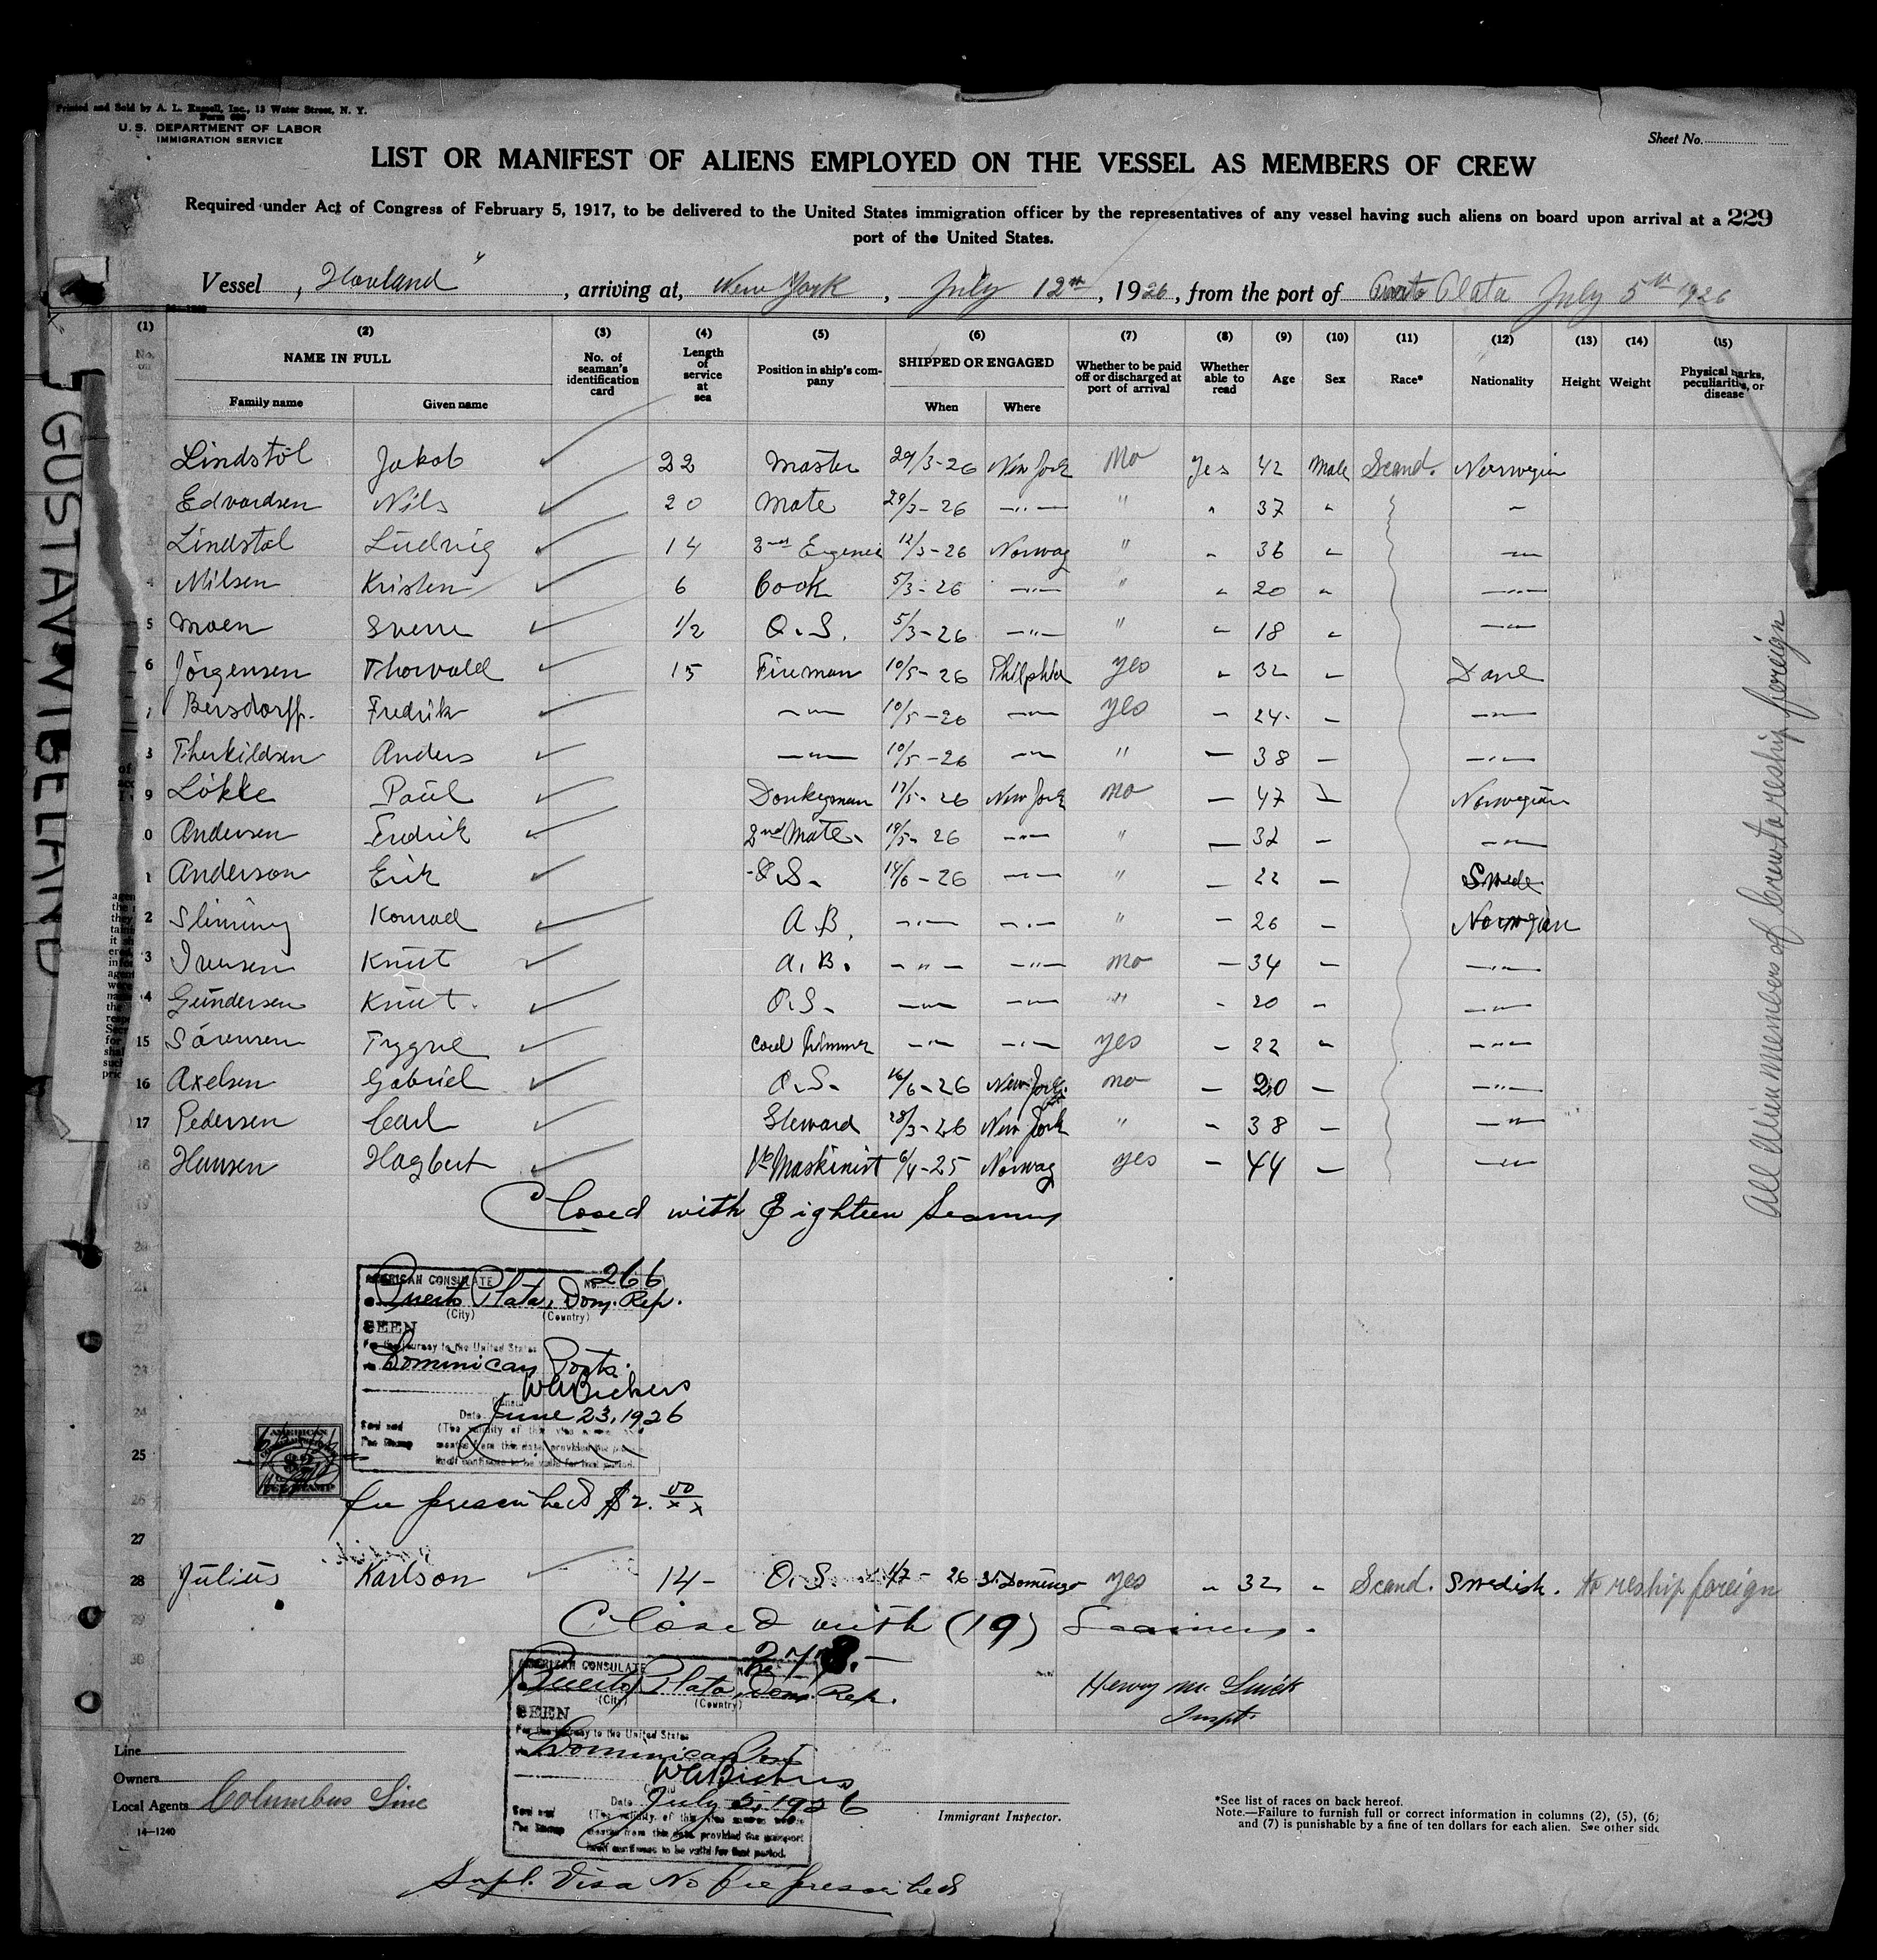 Printed and Sold by A. L. Russell, Inc., 13 Water Street, N. Y.
Form 680
U. S. DEPARTMENT OF LABOR
IMMIGRATION SERVICE
Sheet No.
LIST OR MANIFEST OF ALIENS EMPLOYED ON THE VESSEL AS MEMBERS OF CREW
Required under Act of Congress of February 5, 1917, to be delivered to the United States immigration officer by the representatives of any vessel having such aliens on board upon arrival at a 229
port of the United States.
Vessel "Hovland", arriving at, New York, July 12th, 1926, from the port of Puerto Plata July 5th 1926
(1) (2) (3) (4) (5) (6) (7) (8) (9) (10) (11) (12) (13) (14) (15)
No. on NAME IN FULL No. of seaman's identification card Length of service at sea Position in ship's company SHIPPED OR ENGAGED Whether to be paid off or discharged at port of arrival Whether able to read Age Sex Race* Nationality Height Weight Physical marks, peculiarities, or disease
Family name Given name When Where
Lindstöl Jakob 22 Master 29/3-26 New York no yes 42 Male Scand. Norwegian
2 Edvardsen Nils 20 Mate 29/3-26 -"- " " 37 " -
3 Lindstöl Ludvig 14 2nd Engeneer 12/3-26 Norway " " 36 " -"-
4 Nilsen Kristen 6 Cook 5/3-26 -"- " " 20 " -"-
5 Moen Sverre 1/2 O.S. 5/3-26 -"- " " 18 " -"-
6 Jörgensen Thorvald 15 Fireman 10/5-26 Philphia yes " 32 - Dane
7 Bersdorff. Fredrik -"- 10/5-26 -"- yes - 24 - -"-
8 Therkildsen Anders -"- 10/5-26 -"- " - 38 - -"-
9 Lökke Paul Donkeyman 17/5-26 New York no - 47 - Norwegian
0 Andersen Fredrik 2nd Mate 18/5-26 -"- " - 32 - -"-
1 Anderson Erik O.S. 14/6-26 -"- " - 22 - Swede
2 Sliming Konrad A.B. -"- -"- " - 26 - Norwegian
3 Iversen Knut A.B. -"- -"- no - 34 - -"-
4 Gundersen Knut. O.S. -"- -"- " - 20 - -"-
15 Sörensen Trygve Coal trimmer -"- -"- yes - 22 " -"-
16 Axelsen Gabriel O.S. 16/6-26 New York no - 20 - -"-
17 Pedersen Carl Steward 28/3-26 New York " - 38 - -"-
18 Hansen Hagbert Maskinist 6/4-25 Norway yes - 44 - -"-
19 Closed with Eighteen Seamen
20
21
22
23
24
25
26
27
AMERICAN CONSULATE No. 266
Puerto Plata, Dom. Rep.
(City) (Country)
SEEN
For the journey to the United States
Dominican Ports.
WABickers
Consul
Date June 23, 1926
Seal and (The validity of this visa
Fee Stamp months from this date, provided the
itself continues to be valid for that period.
AMERICAN
$2
FEE STAMP
fee prescribed $2.00
28 Julius Karlson 14- O.S. 1/7-26 St Domingo yes " 32 " Scand. Swedish. to reship foreign
29 Closed with (19) Seamen.
30
AMERICAN CONSULATE No. 278.-
Puerto Plata, Dom. Rep.
(City) (Country)
SEEN
For the journey to the United States
Dominican Port
WABickers
Date July 5, 1926
Seal and (The validity of this visa
Fee Stamp months from this date, provided the passport
itself continues to be valid for that period.
Supl. Visa No fee prescribed
Henry M.
Inspt.
Immigrant Inspector.
Line
Owners
Local Agents Columbus Line
14—1240
*See list of races on back hereof.
Note.—Failure to furnish full or correct information in columns (2), (5), (6)
and (7) is punishable by a fine of ten dollars for each alien. See other side
All alien members of crew to reship foreign
GUSTAV VIGELAND